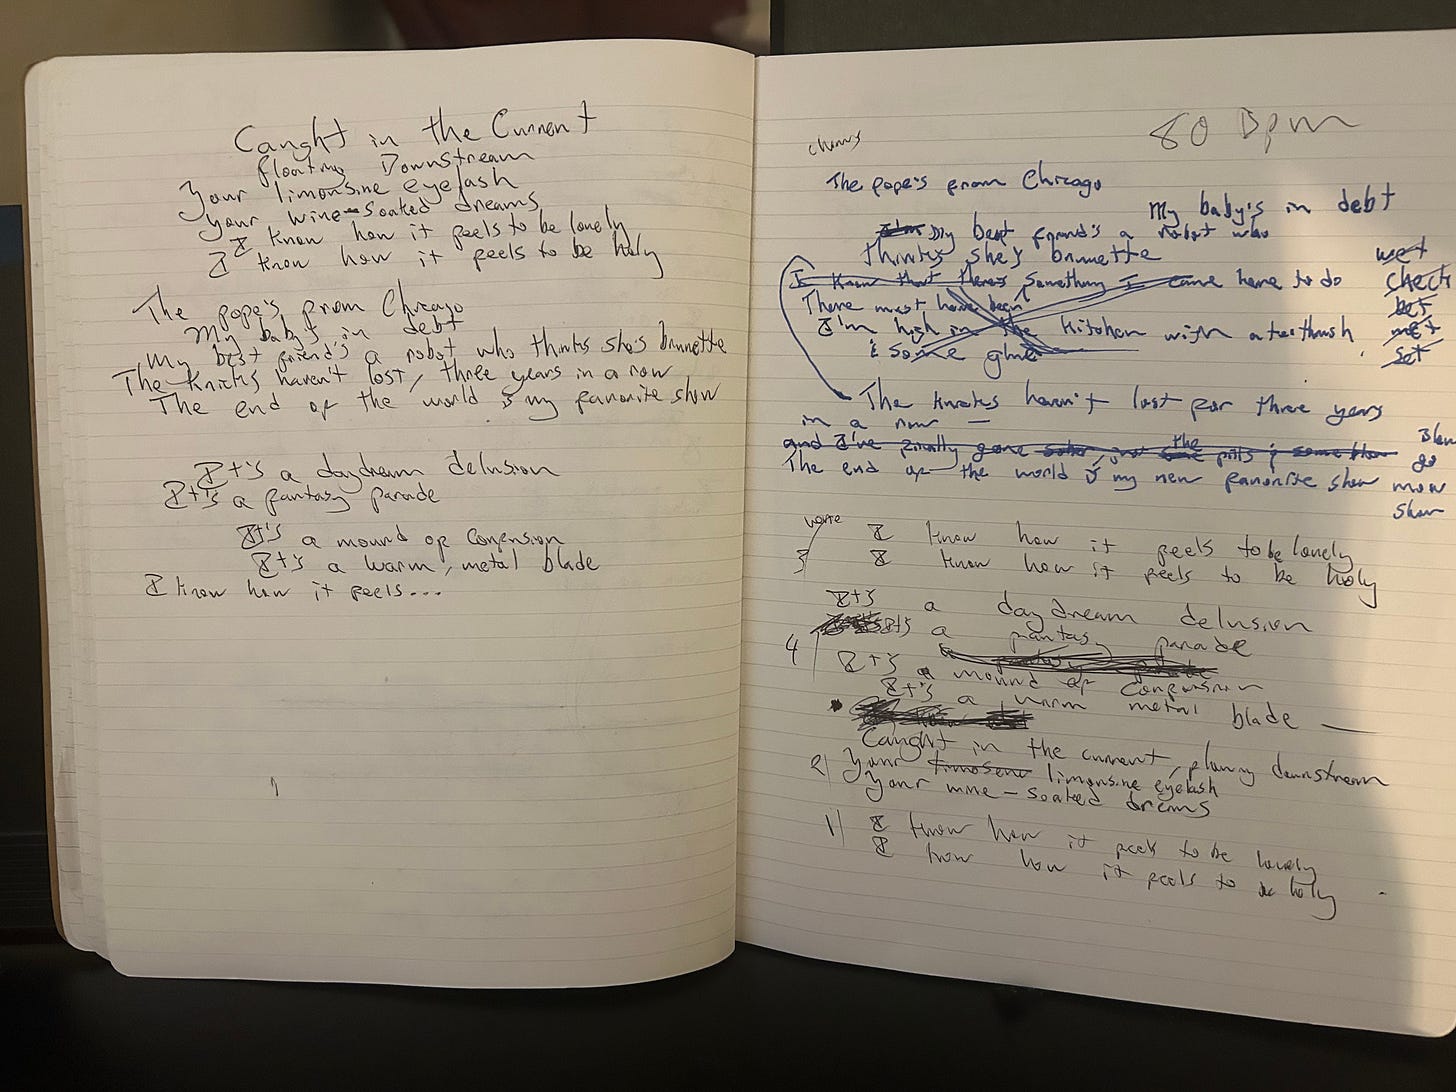 Caught in the Current
floating Downstream
Your limousine eyelash
Your wine-soaked dreams
I know how it feels to be lonely
I know how it feels to be holy
The pope's from Chicago
My baby's in debt
My best friend's a robot who thinks she's brunette
The Knicks haven't lost, three years in a row
The end of the world is my favorite show
It's a daydream delusion
It's a fantasy parade
It's a mound of confusion
It's a warm, metal blade
I know how it feels...
80 Bpm
chorus
The pope's from Chicago
My baby's in debt
My best friend's a robot who
thinks she's brunette
wet
I know that there's something I came here to do
check
There must have been
bet
I'm high in the kitchen with a toothbrush
met
& some glue
set
The Knicks haven't lost for three years
in a row —
and I've finally gone sober, not the pills & some blow
blow
The end of the world is my new favorite show
go
mow
show
verse
I know how it feels to be lonely
3
I know how it feels to be holy
It's a daydream delusion
It's a fantasy parade
4
It's a mound of confusion
It's a warm metal blade —
Caught in the current, flowing downstream
2
Your limousine eyelash
Your wine-soaked dreams
1
I know how it feels to be lonely
I know how it feels to be holy